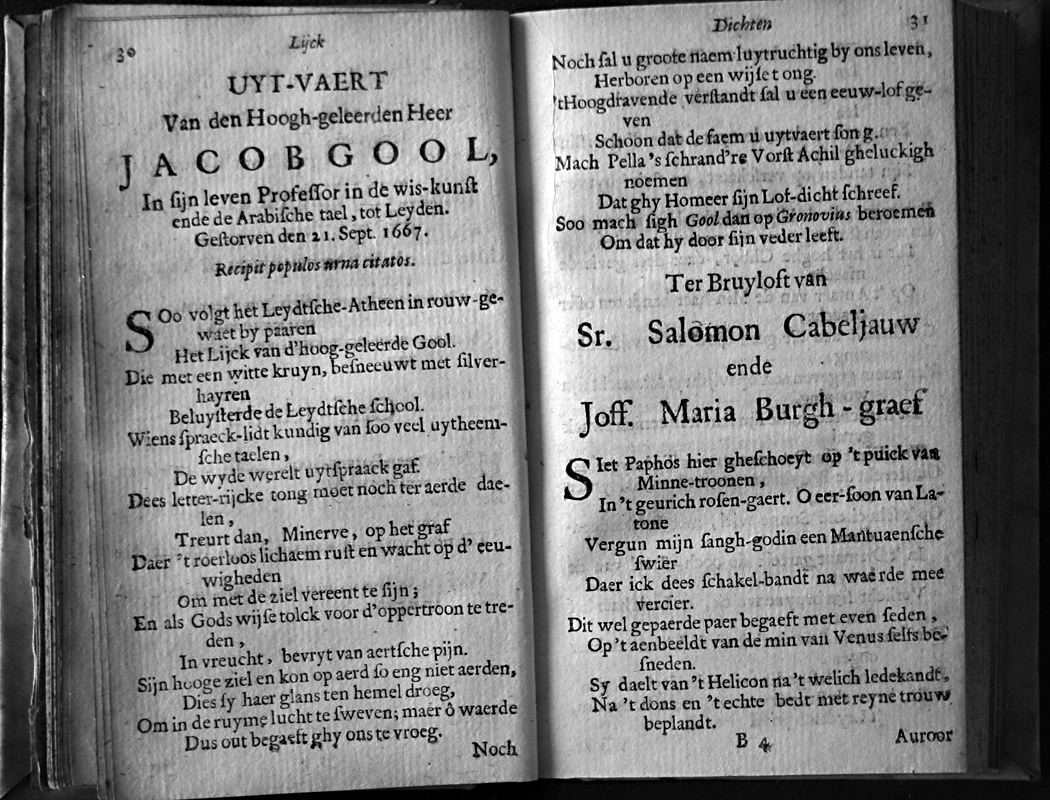 30
Lijck
UYT-VAERT
Van den Hoogh-geleerden Heer
JACOB GOOL,
In ſijn leven Profeſſor in de wis-kunſt
ende de Arabiſche tael, tot Leyden.
Geſtorven den 21. Sept. 1667.
Recipit populos urna citatos.
SOo volgt het Leydtſche-Atheen in rouw-ge-
waet by paaren
Het Lijck van d'hoog-geleerde Gool.
Die met een witte kruyn, beſneeuwt met ſilver-
hayren
Beluyſterde de Leydtſche ſchool.
Wiens ſpraeck-lidt kundig van ſoo veel uytheem-
ſche taelen,
De wyde werelt uytſpraack gaf.
Dees letter-rijcke tong moet noch ter aerde dae-
len,
Treurt dan, Minerve, op het graf
Daer 't roerloos lichaem ruſt en wacht op d' eeu-
wigheden
Om met de ziel vereent te ſijn;
En als Gods wijſe tolck voor d'oppertroon te tre-
den,
In vreucht, bevryt van aertſche pijn.
Sijn hooge ziel en kon op aerd ſo eng niet aerden,
Dies ſy haer glans ten hemel droeg,
Om in de ruyme lucht te ſweven; maer ô waerde
Dus out begaeft ghy ons te vroeg.
Noch
Dichten
31
Noch ſal u groote naem luytruchtig by ons leven,
Herboren op een wijſe tong.
'tHoogdravende verſtandt ſal u een eeuw-lof ge-
ven
Schoon dat de faem u uytvaert ſong.
Mach Pella's ſchrand're Vorſt Achil gheluckigh
noemen
Dat ghy Homeer ſijn Lof-dicht ſchreef.
Soo mach ſigh Gool dan op Gronovius beroemen
Om dat hy door ſijn veder leeft.
Ter Bruyloft van
Sr. Salomon Cabeljauw
ende
Joff. Maria Burgh-graef
SIet Paphos hier gheſchoeyt op 't puick van
Minne-troonen,
In 't geurich roſen-gaert. O eer-ſoon van La-
tone
Vergun mijn ſangh-godin een Mantuaenſche
ſwier
Daer ick dees ſchakel-bandt na waerde mee
vercier.
Dit wel gepaerde paer begaeft met even ſeden,
Op 't aenbeeldt van de min van Venus ſelfs be-
ſneden.
Sy daelt van 't Helicon na 't welich ledekandt,
Na 't dons en 't echte bedt met reyne trouw
beplandt.
B 4
Auroor